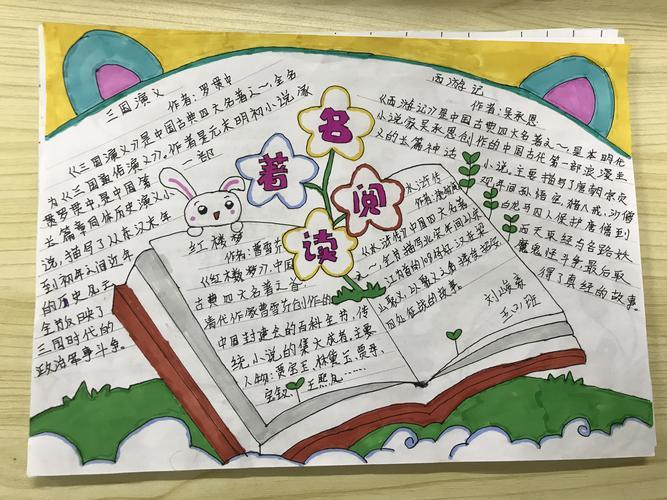 名
著
阅
读
三国演义
作者:罗贯中
《三国演义》是中国古典四大名著之一,全名
为《三国通俗演义》。作者是元末明初小说家
罗贯中是中国第一部
长篇章回体历史演义小
说,描写了从东汉末年
到初年之间近年
的历史风云
全部反映了
三国时代的
政治军事斗争。
西游记
作者:吴承恩
《西游记》是中国古典四大名著之一,是本明代
小说家吴承恩创作的中国古代第一部浪漫主
义的长篇神话小说。主要描写了唐朝
年间孙悟空、猪八戒、沙僧
白龙马四人保护唐僧到
西天取经与各路妖
魔鬼怪斗争最后取
得了真经的故事。
红楼梦
作者:曹雪芹
《红楼梦》,中国
古典四大名著之首
清代作家曹雪芹创作的
中国封建社会的百科全书,传
统小说的集大成者,主要
人物:贾宝玉、林黛玉、贾
宝钗、王熙凤……
水浒传
作者:施耐庵
《水浒传》中国四大名著
之一,
为首的108好汉
以及
四处征战的故事。
刘
班